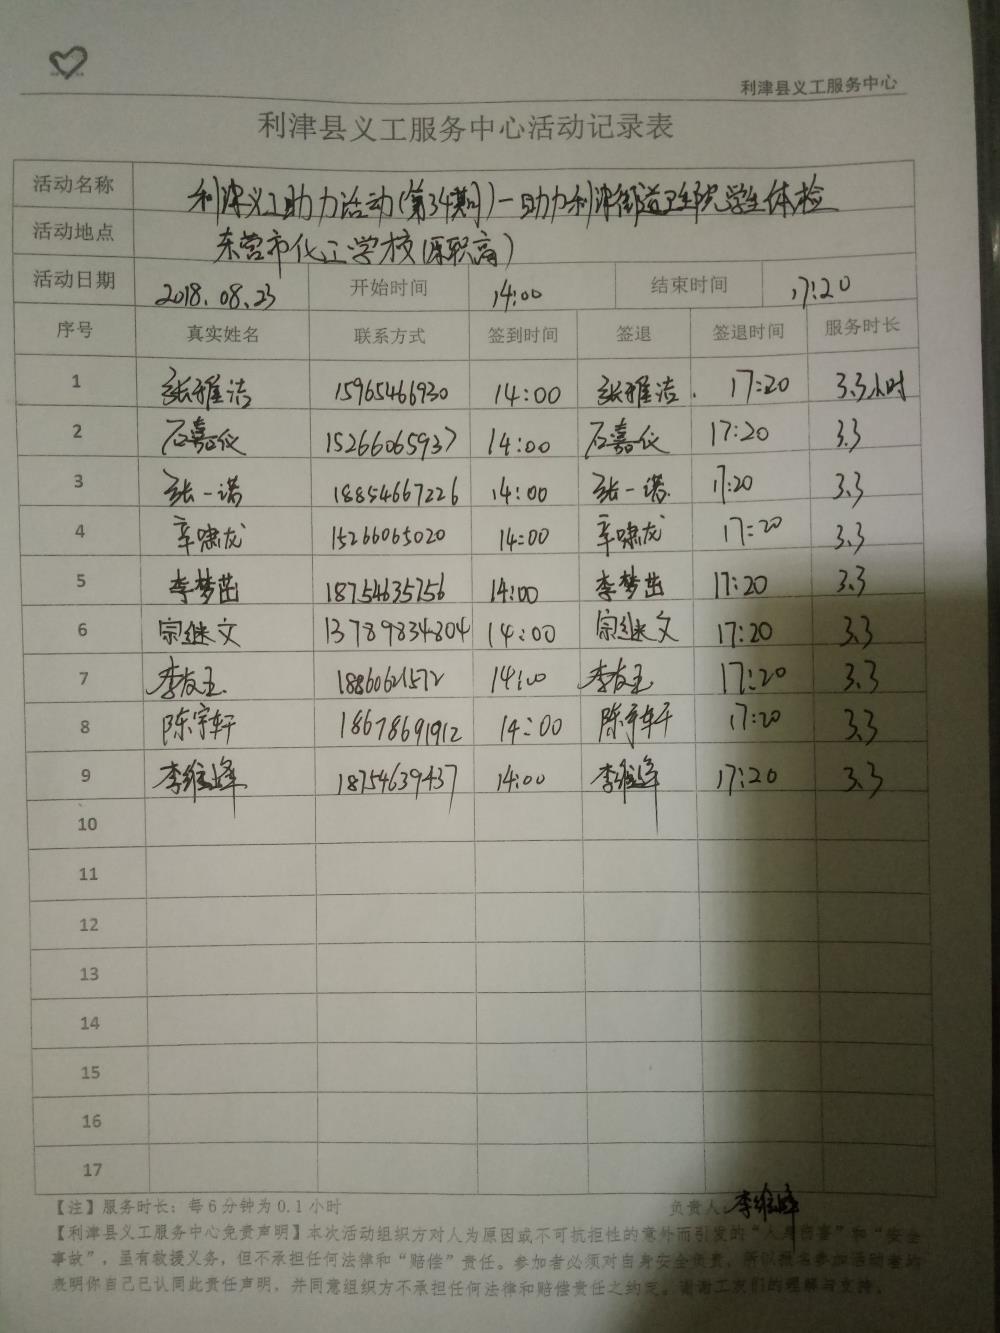 利津县义工服务中心
利津县义工服务中心活动记录表
活动名称 利津义工助力活动(第34期)—助力利津街道卫生院学生体检
活动地点 东营市化工学校(原职高)
活动日期 2018.08.23 开始时间 14:00 结束时间 17:20
序号 真实姓名 联系方式 签到时间 签退 签退时间 服务时长
1 张雅洁 15965466930 14:00 张雅洁. 17:20 3.3小时
2 石嘉仪 15266065937 14:00 石嘉仪 17:20 3.3
3 张一诺 18854667226 14:00 张一诺 17:20 3.3
4 辛啸龙 15266065020 14:00 辛啸龙 17:20 3.3
5 李梦茁 18754635756 14:00 李梦茁 17:20 3.3
6 宗继文 13789834804 14:00 宗继文 17:20 3.3
7 李友玉 18860621572 14:00 李友玉 17:20 3.3
8 陈宇轩 18678691912 14:00 陈宇轩 17:20 3.3
9 李维峰 18754639437 14:00 李维峰 17:20 3.3
10
11
12
13
14
15
16
17
【注】服务时长：每6分钟为0.1小时 负责人：李维峰
【利津县义工服务中心免责声明】本次活动组织方对人为原因或不可抗拒性的意外而引发的“人身伤害”和“安全
事故”，虽有救援义务，但不承担任何法律和“赔偿”责任。参加者必须对自身安全负责，所以报名参加活动者均
表明你自己已认同此责任声明，并同意组织方不承担任何法律和赔偿责任之约定。谢谢工友们的理解与支持。